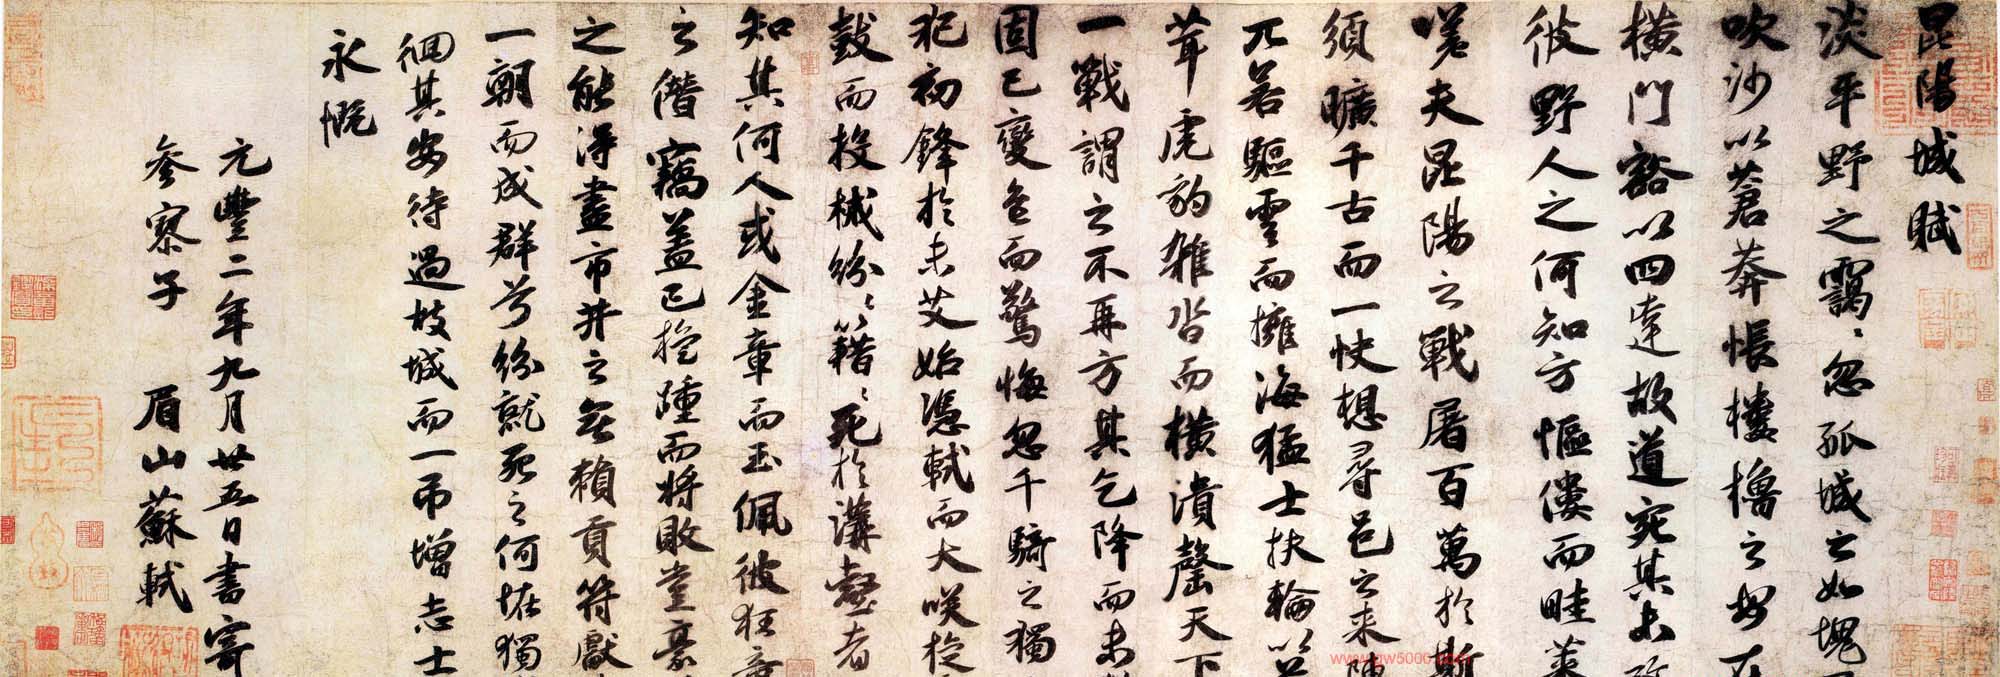 昆陽城賦
淡平野之靄〻忽孤城之如塊
吹沙以蒼莽悵樓櫓之安在
橫門豁以四達故道宛其未改
彼野人之何知方傴僂而畦菜
嗟夫昆陽之戰屠百萬於斯
須曠千古而一快想尋邑之來陣
兀若驅雲而擁海猛士扶輪以蒙
茸虎豹雜沓而橫潰罄天下
一戰謂之不再方其乞降而未
固已變色而驚悔忽千騎之獨
犯初鋒於未艾始憑軾而大笑旋
鼓而投械紛〻籍〻死於溝壑者
知其何人或金章而玉佩彼狂童
之僭竊蓋已旋踵而將敗豈豪
之能得盡市井之無賴貢符獻
一朝而成群兮紛就死之何怪獨
徊其安待過故城而一弔增志士
永慨
元豐二年九月廿五日書寄
參寥子 眉山蘇軾
www.gw5000.com